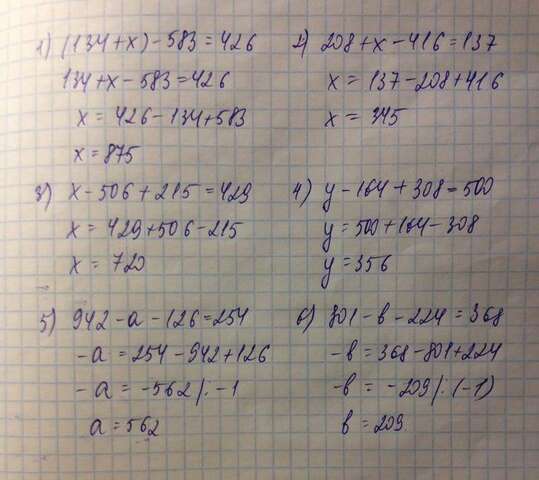 1) (134+x)-583=426
134+x-583=426
x = 426-134+583
x=875
2) 208+x-416=137
x = 137-208+416
x = 345
3) x-506+215=429
x = 429+506-215
x = 720
4) y-164+308=500
y=500+164-308
y=356
5) 942-a-126=254
-a = 254-942+126
-a = -562 /: -1
a=562
6) 801-в-224=368
-в=368-801+224
-в = -209 /: (-1)
в=209